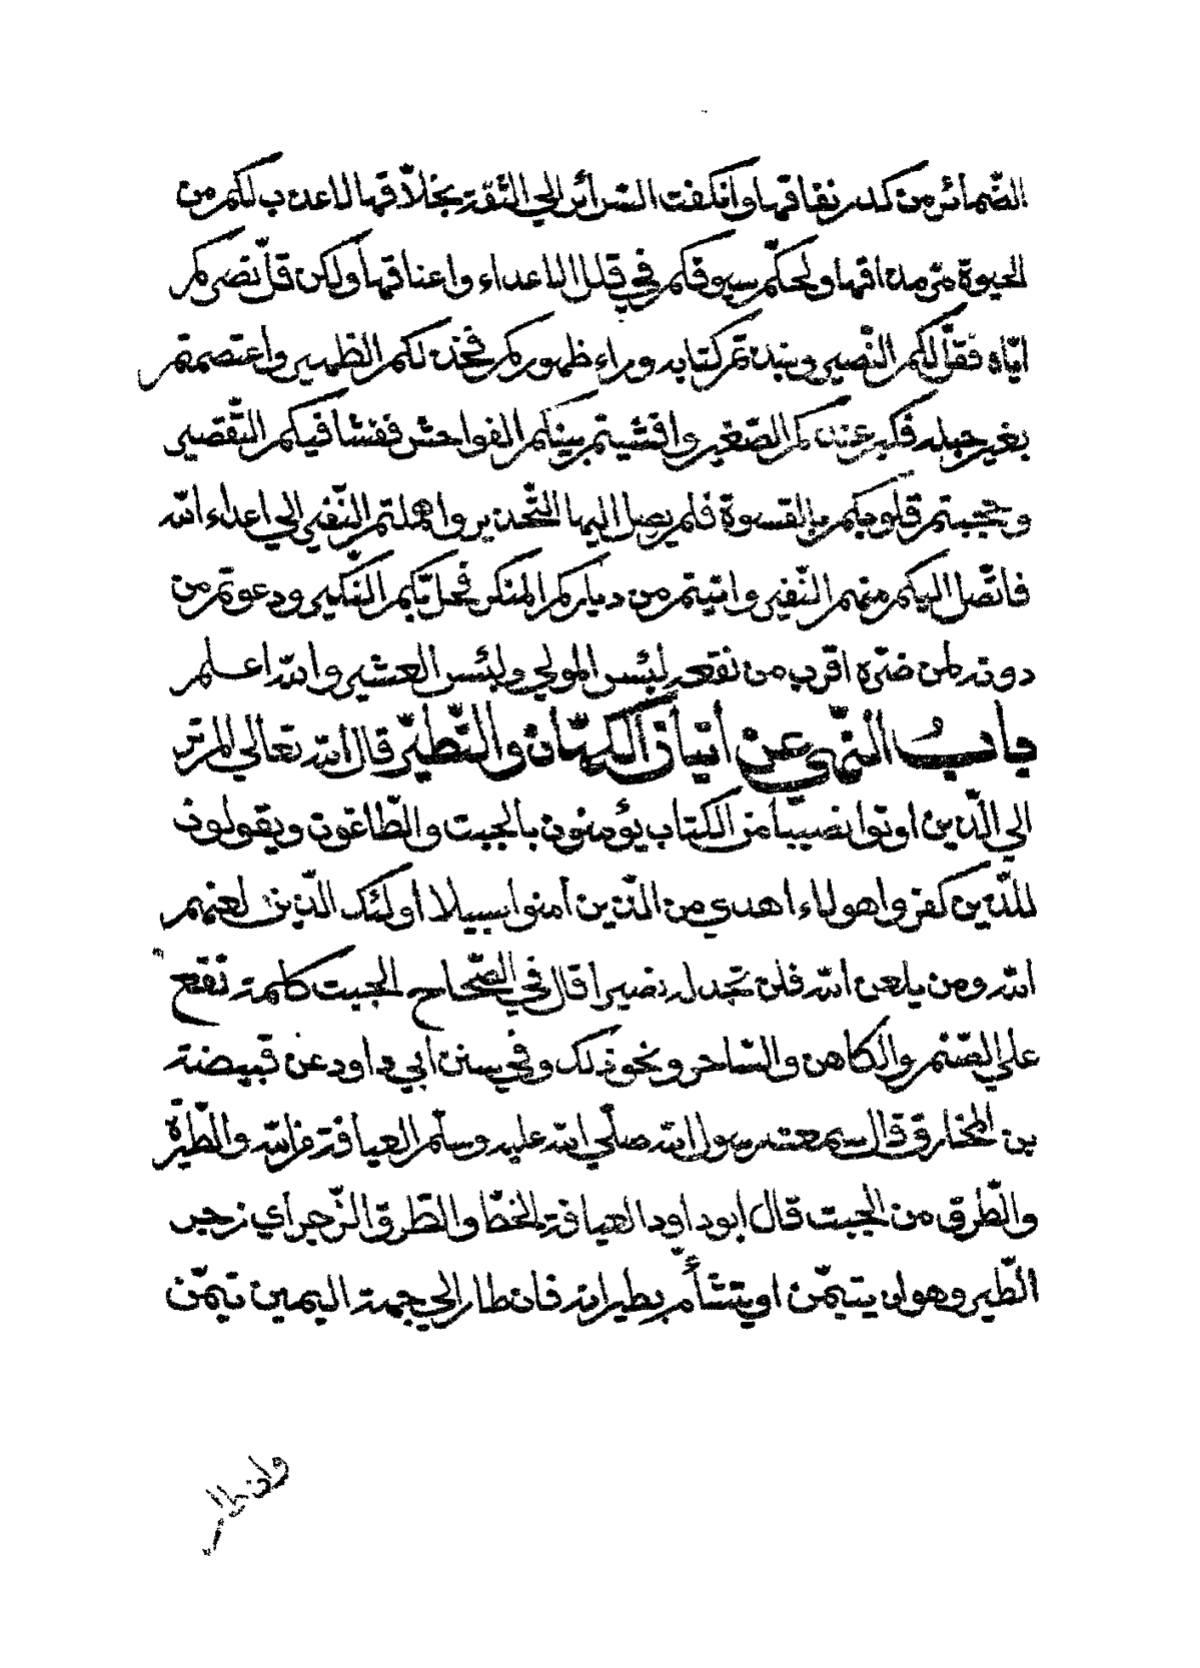 الضّمائر من كدر نفاقها وانكفت السّرائر الي الثّقة بخلّاقها لاعذب لكم من
الحيوة مرّ مذاقها ولحكّم سيوفكم في قلل الاعداء واعناقها ولكن قلّ نصركم
ايّاه فقلّ لكم النّصير ونبذتم كتابه وراء ظهوركم فخذلكم الظهير واعتصمتم
بغير حبله فكبر عندكم الصّغير وافشيتم بينكم الفواحش ففشا فيكم التّقصير
وحجبتم قلوبكم بالقسوة فلم يصل اليها التّحذير واهملتم النّفير الي اعداء الله
فاتّصل اليكم منهم النّفير واتيتم من دياركم المنكر فحلّ بكم النّكير ودعوتم من
دونه لمن ضرّه اقرب من نفعه لبئس المولي ولبئس العشير والله اعلم
باب النّهي عن اتيان الكهّان والتّطيّر قال الله تعالي الم تر
الي الّذين اوتوا نصيبا من الكتاب يؤمنون بالجبت والطّاغوت ويقولون
للّذين كفروا هولاء اهدي من الّذين آمنوا سبيلا اولئك الّذين لعنهم
الله ومن يلعن الله فلن تجد له نصيرا قال في الصّحاح الجبت كلمة تقع
علي الصّنم والكاهن والسّاحر ونحو ذلك وفي سنن أبي داود عن قبيصة
بن المخارق قال سمعت رسول الله صلّي الله عليه وسلّم العيافة والطّيرة
والطّرق من الجبت قال ابو داود العيافة الخطّ والطّرق الزّجر أي زجر
الطّير وهو ان يتيمّن او يتشأّم بطيرانه فان طار الي جهة اليمين تيمّن
وان طار